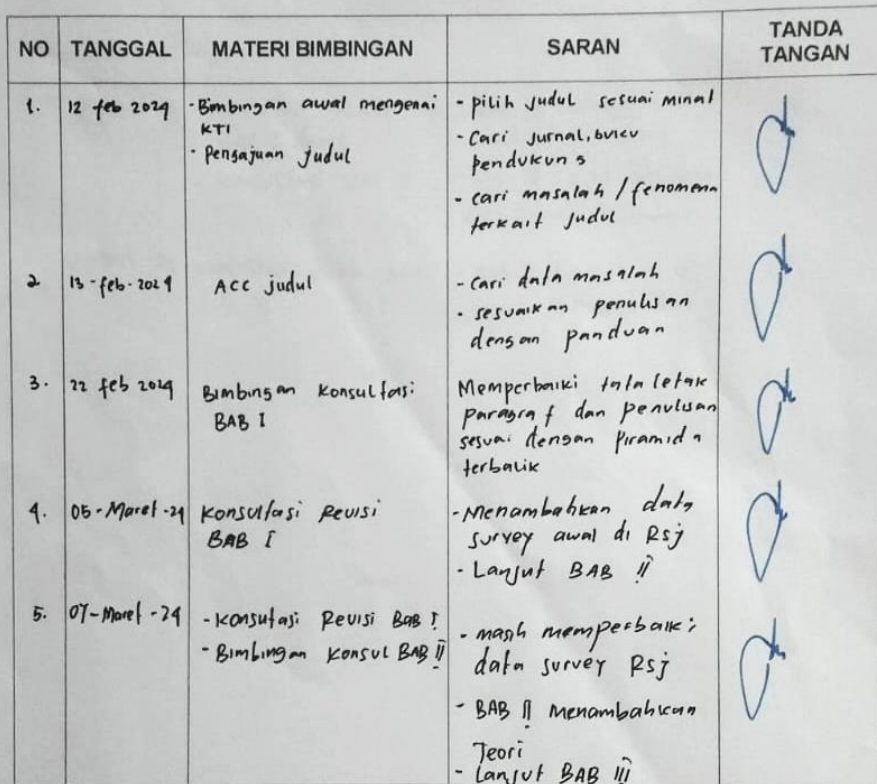 NO TANGGAL MATERI BIMBINGAN SARAN TANDA TANGAN
1. 12 feb 2024 - Bimbingan awal mengenai KTI
- Pengajuan judul
- pilih judul sesuai minat
- Cari jurnal, buku
pendukung
- cari masalah / fenomena
terkait judul
2 13 - feb - 2024 ACC judul
- cari data masalah
- sesuaikan penulisan
dengan panduan
3. 22 feb 2024 Bimbingan Konsultasi
BAB I
Memperbaiki tata letak
paragraf dan penulisan
sesuai dengan piramida
terbalik
4. 05 - Maret - 24 Konsultasi Revisi
BAB I
- Menambahkan data
survey awal di RSj
- Lanjut BAB II
5. 07 - Maret - 24 - Konsutasi Revisi BAB I
- Bimbingan Konsul BAB II
- masih memperbaiki
data survey RSj
- BAB II Menambahkan
Teori
- Lanjut BAB III